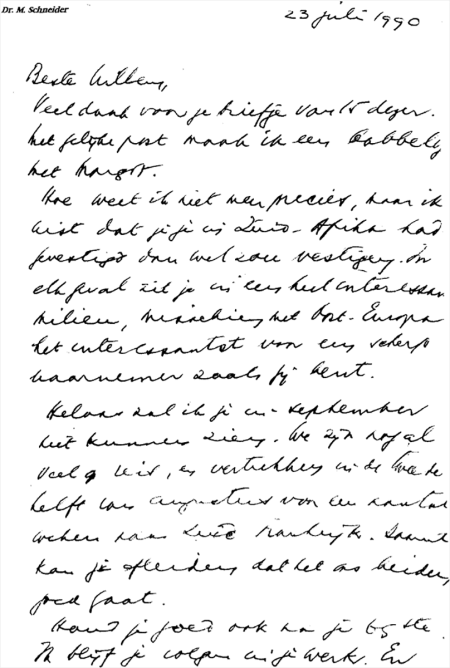 Dr. M. Schneider
23 juli 1990
Beste Willem,
Veel dank voor je briefje van 15 dezer.
Met gelijke post maak ik een babbeltje
met Margot.
Hoe weet ik niet meer precies, maar ik
wist dat jij je in Zuid-Afrika had
gevestigd dan wel zou vestigen. In
elk geval zit je in een heel interessant
milieu, misschien met Oost-Europa
het interessantst voor een scherp
waarnemer zoals jij bent.
Helaas zal ik je in september
niet kunnen zien. We zijn nogal
veel op reis, en vertrekken in de tweede
helft van augustus voor een aantal
weken naar Zuid Frankrijk. Daaruit
kan je afleiden dat het ons beiden
goed gaat.
Houd je goed ook na je 65ste.
Ik blijf je volgen in je werk. En